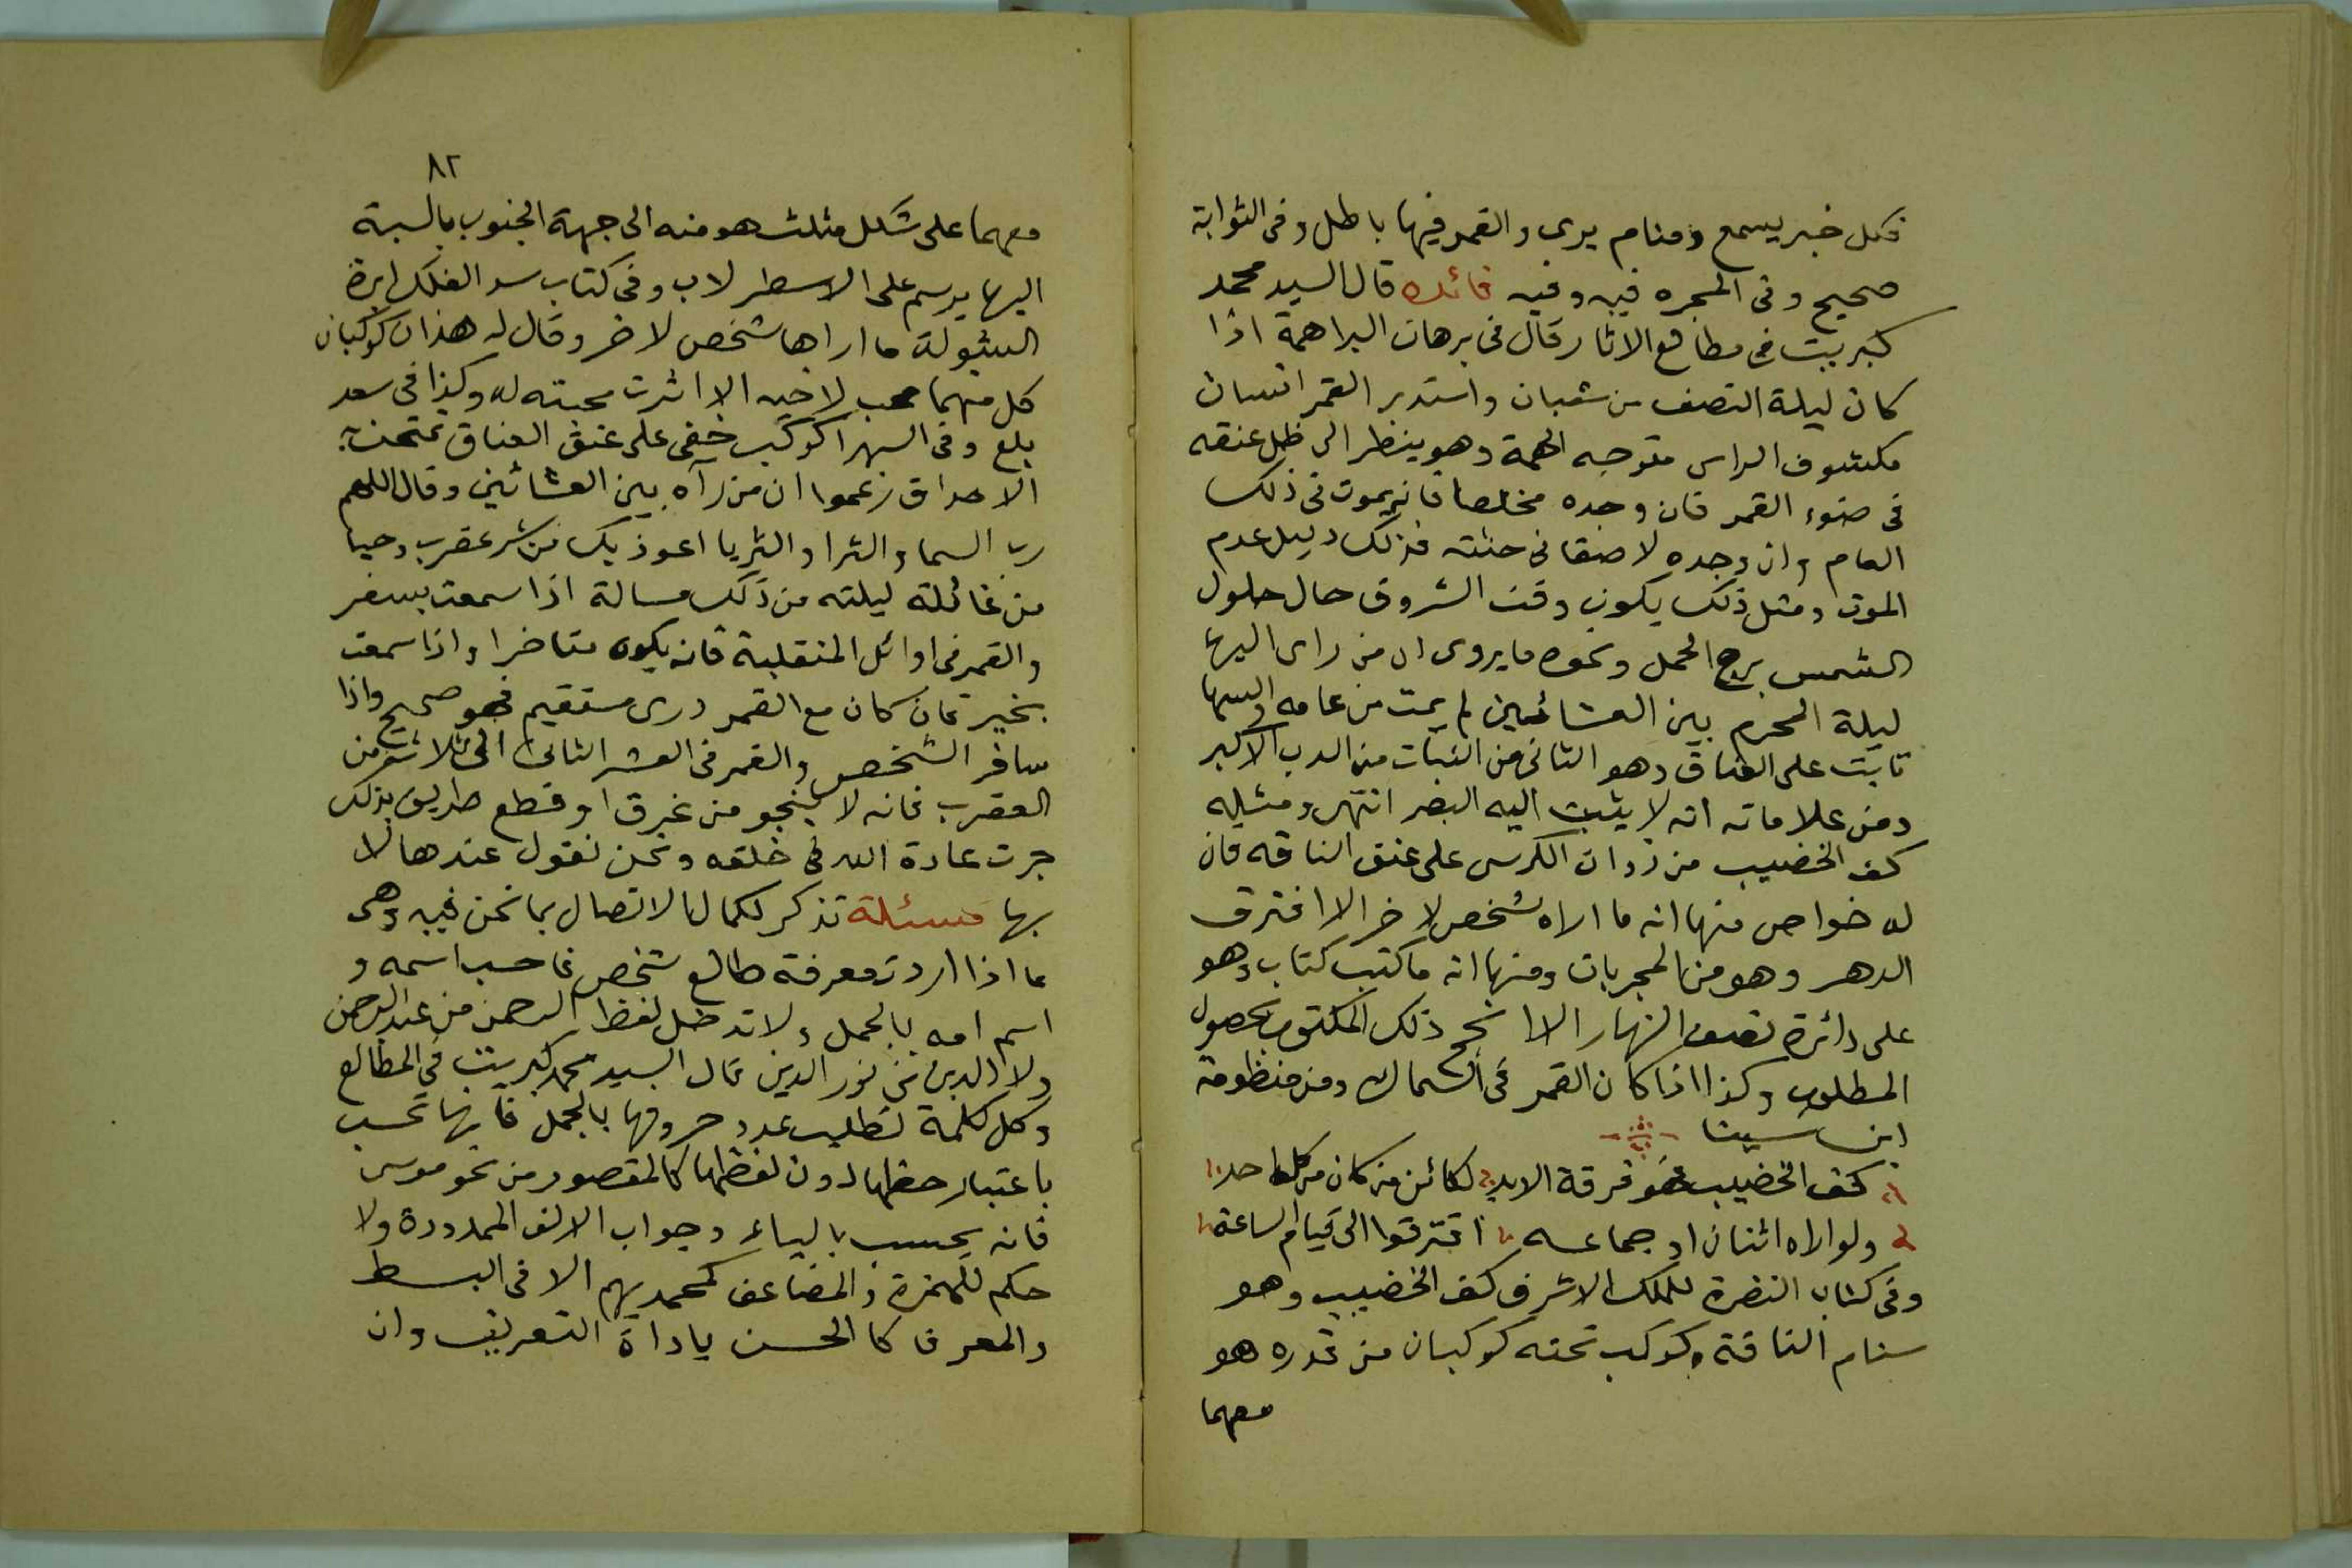 فكل خبر يسمع ومنام يرى والقمر فيها باطل وفى الثوابة
صحيح وفى المجره فيه وفيه فائده قال السيد محمد
كبريت فى مطالع الاثار قال فى برهان البراهمة اذا
كان ليلة النصف من شعبان واستدبر القمر انسان
مكشوف الراس متوجه الهمة وهو ينظر الى ظل عنقه
فى ضوء القمر فان وجده مخلصا فانه يموت فى ذلك
العام وان وجده لاصقا فى جثته فذلك دليل عدم
الموت ومثل ذلك يكون وقت الشروق حال حلول
الشمس برج الحمل ونحوه ما يروى ان من راى السها
ليلة المحرم بين العشائين لم يمت من عامه والسها
ثابت على العناق وهو الثانى من البنات من الدب الاكبر
ومن علاماته انه لا يثبت اليه البصر انتهى ومثله
كف الخضيب من ذوات الكرسى على عنق الناقه فان
له خواص منها انه ما اراه شخص لاخر الا افترق
الدهر وهو من المجربات ومنها انه ما كتب كتاب وهو
على دائرة نصف النهار الا نجح ذلك المكتوب بحصول
المطلوب وكذا اذا كان القمر فى الشمال ومن منظومة
ابن سينا
كف الخضيب فرقة الابد لكائن من كان من كل احد
ولو اراه اثنان او جماعه افترقوا الى قيام الساعة
وفى كتاب النضرة للملك الاشرف كف الخضيب وهو
سنام الناقة وكوكب تحته كوكبان من قدره هو
معهما
٨٢
معهما على شكل مثلث هو منه الى جهة الجنوب بالنسبة
اليها يرسم على الاسطرلاب وفى كتاب الفلك ابرة
الشولة ما اراها شخص لاخر وقال له هذان كوكبان
كل منهما محب لاخيه الا اثرت محبته له وكذا فى سعد
بلع وفى السها كوكب خفى على عنق العناق تمتحن به
الاحداق زعموا ان من رآه بين العشائين وقال اللهم
رب السما والثرا والثريا اعوذ بك من شر عقرب وحيا
من غائلة ليلته من ذلك مسالة اذا سمعت بسفر
والقمر فى اوائل المنقلبة فانه يكون متاخرا واذا سمعت
بخبر فان كان مع القمر درى مستقيم فهو صحيح واذا
سافر الشخص والقمر فى العشر الثانى الى ثلاث من
العقرب فانه لا ينجو من غرق او قطع طريق بذلك
جرت عادة الله فى خلقه ونحن نقول عندها لا
بها مسئلة تذكر لكمال الاتصال بما نحن فيه وهى
ما اذا اردت معرفة طالع شخص فاحسب اسمه و
اسم امه بالجمل ولا تدخل لفظ الرحمن من عبد الرحمن
ولا الدين من نور الدين قال السيد محمد كبريت فى المطالع
وكل كلمة تطلب عدد حروفها بالجمل فانها تحسب
باعتبار خطها دون لفظها كالمقصور من نحو موسى
فانه يحسب بالياء وجواب الالف الممدودة ولا
حكم للهمزة والمضاعف كمحمد يهم الا فى البسط
والمعرف كالحسن باداة التعريف وان